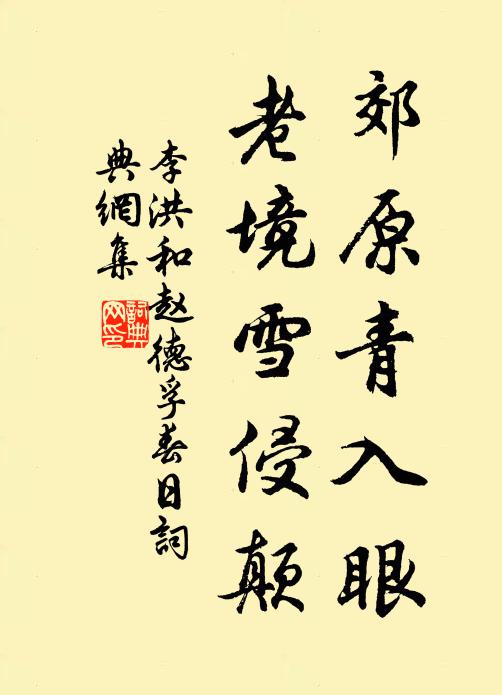 郊原青入眼
老境雪侵颠
李洪和赵德孚春日詞
典網集
詞典网印